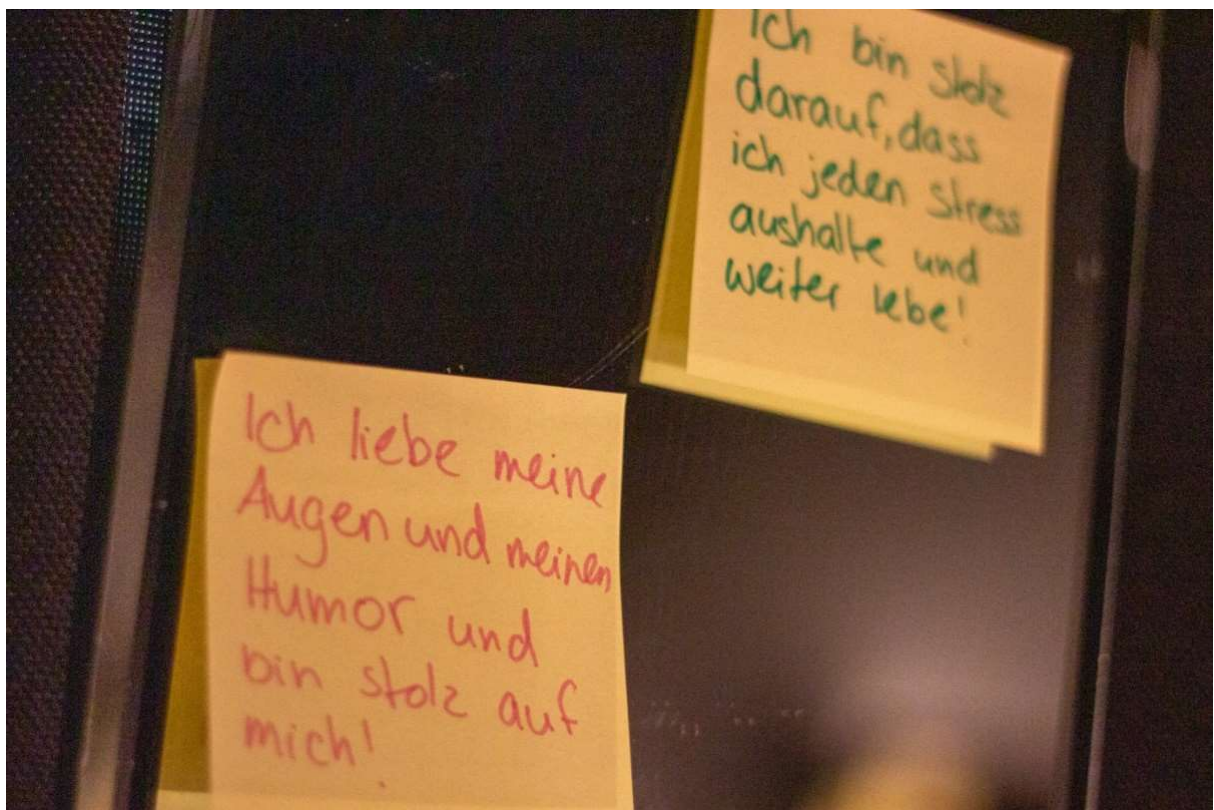 Ich bin stolz
darauf, dass
ich jeden Stress
aushalte und
weiter lebe!
Ich liebe meine
Augen und meinen
Humor und
bin stolz auf
mich!